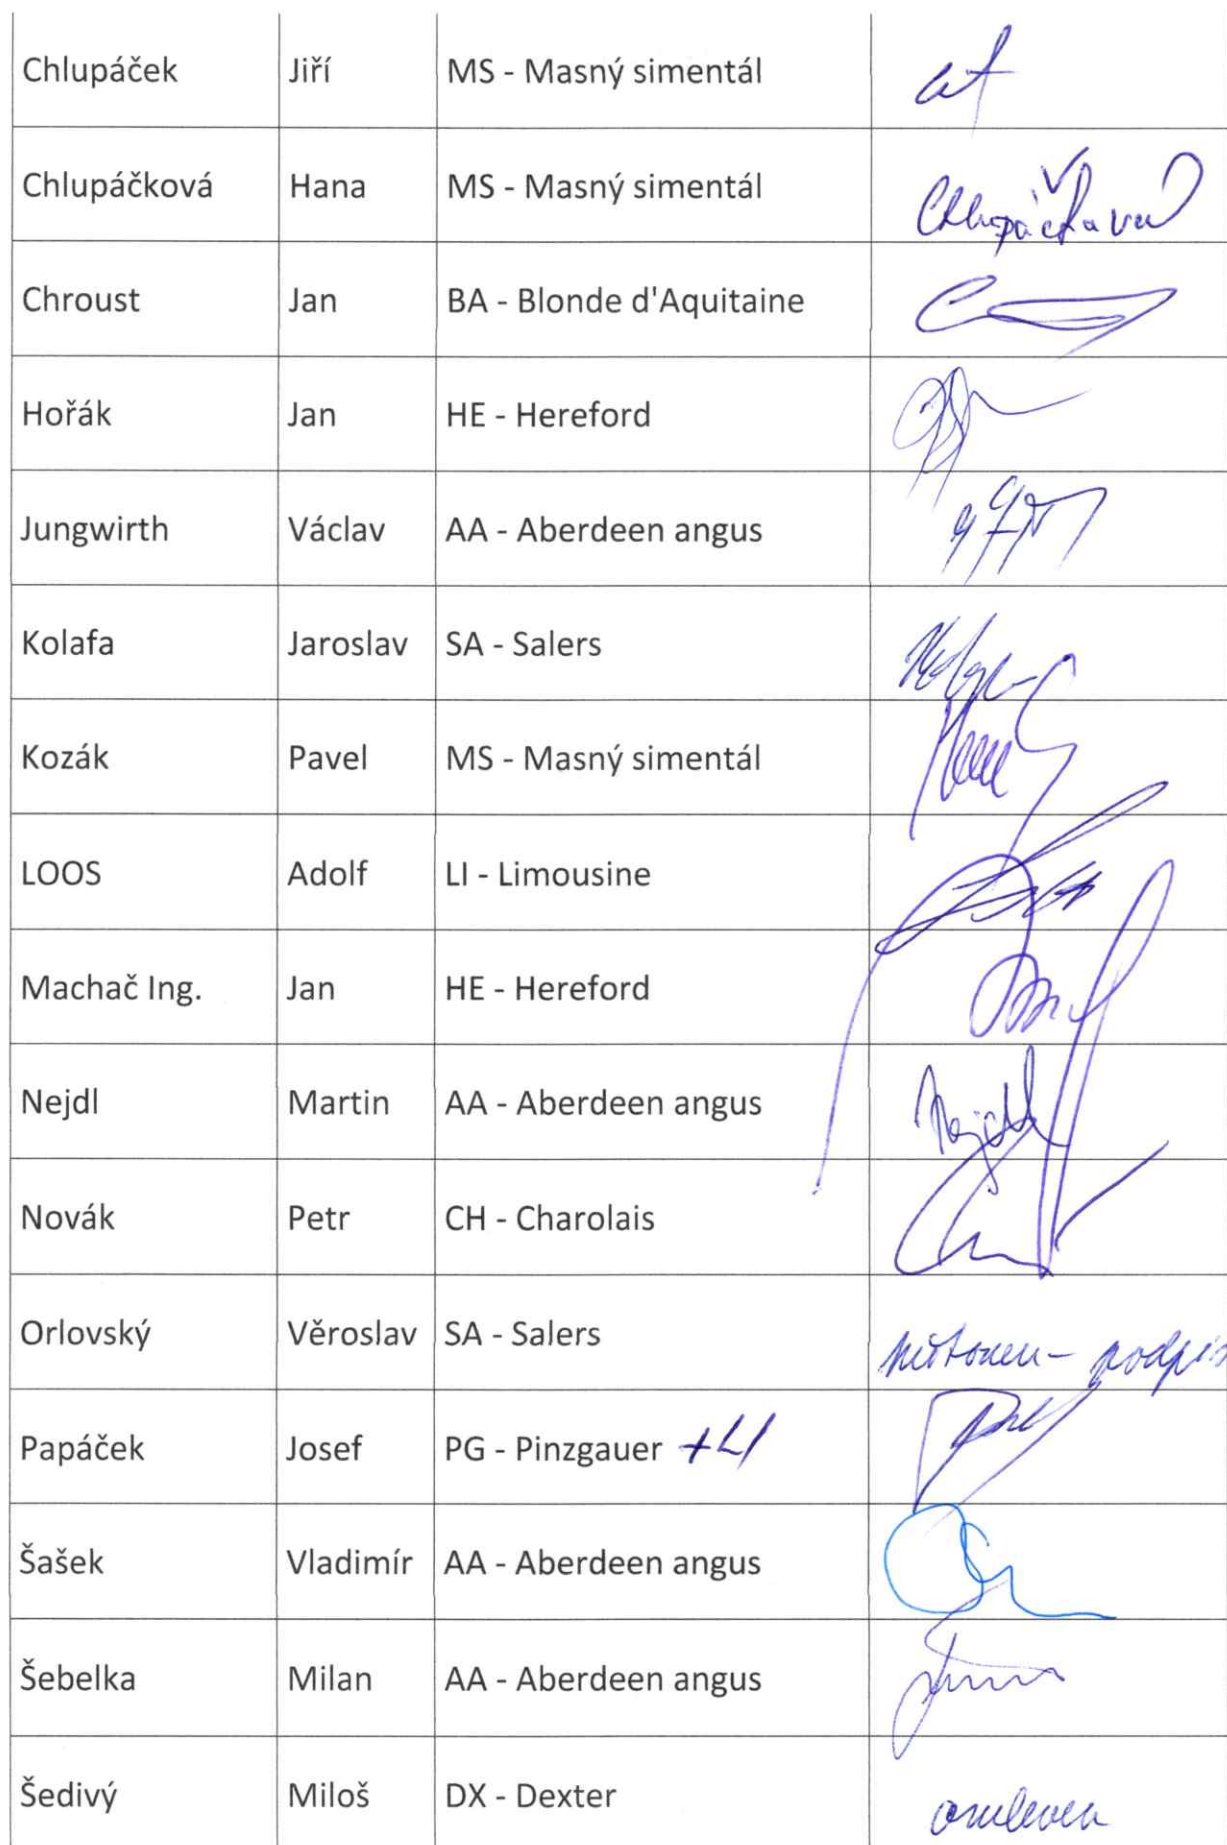 Chlupáček Jiří MS - Masný simentál
Chlupáčková Hana MS - Masný simentál Chlupáčková
Chroust Jan BA - Blonde d'Aquitaine
Hořák Jan HE - Hereford
Jungwirth Václav AA - Aberdeen angus
Kolafa Jaroslav SA - Salers
Kozák Pavel MS - Masný simentál
LOOS Adolf LI - Limousine
Machač Ing. Jan HE - Hereford
Nejdl Martin AA - Aberdeen angus Nejdl
Novák Petr CH - Charolais
Orlovský Věroslav SA - Salers podpis
Papáček Josef PG - Pinzgauer +LI
Šašek Vladimír AA - Aberdeen angus
Šebelka Milan AA - Aberdeen angus
Šedivý Miloš DX - Dexter omluven